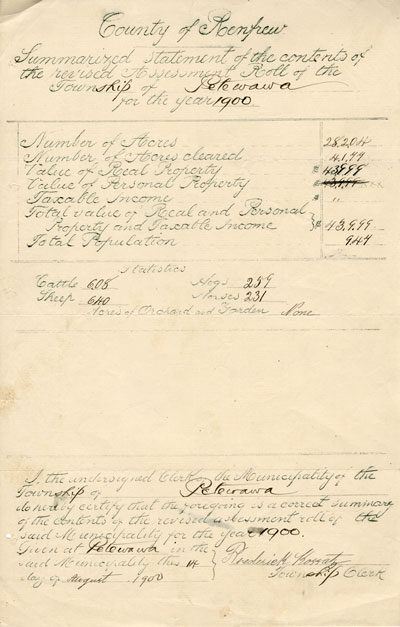 County of Renfrew
Summarized statement of the contents of
the revised Assessment Roll of the
Township of Petewawa
for the year 1900
Number of Acres 28,204
Number of Acres cleared 4,199
Value of Real Property $ 43,999
Value of Personal Property $
Taxable Income $ "
Total value of Real and Personal
Property and Taxable Income } $ 43,999
Total Population 947
Statistics
Cattle 608 Hogs 259
Sheep 640 Horses 231
Acres of Orchard and Garden None
I, the undersigned Clerk of the Municipality of the
Township of Petewawa
do hereby certify that the foregoing is a correct summary
of the contents of the revised assessment roll of the
said Municipality for the year 1900.
Given at Petewawa in the
said Municipality this 14
day of August 1900
Roderick
Township Clerk